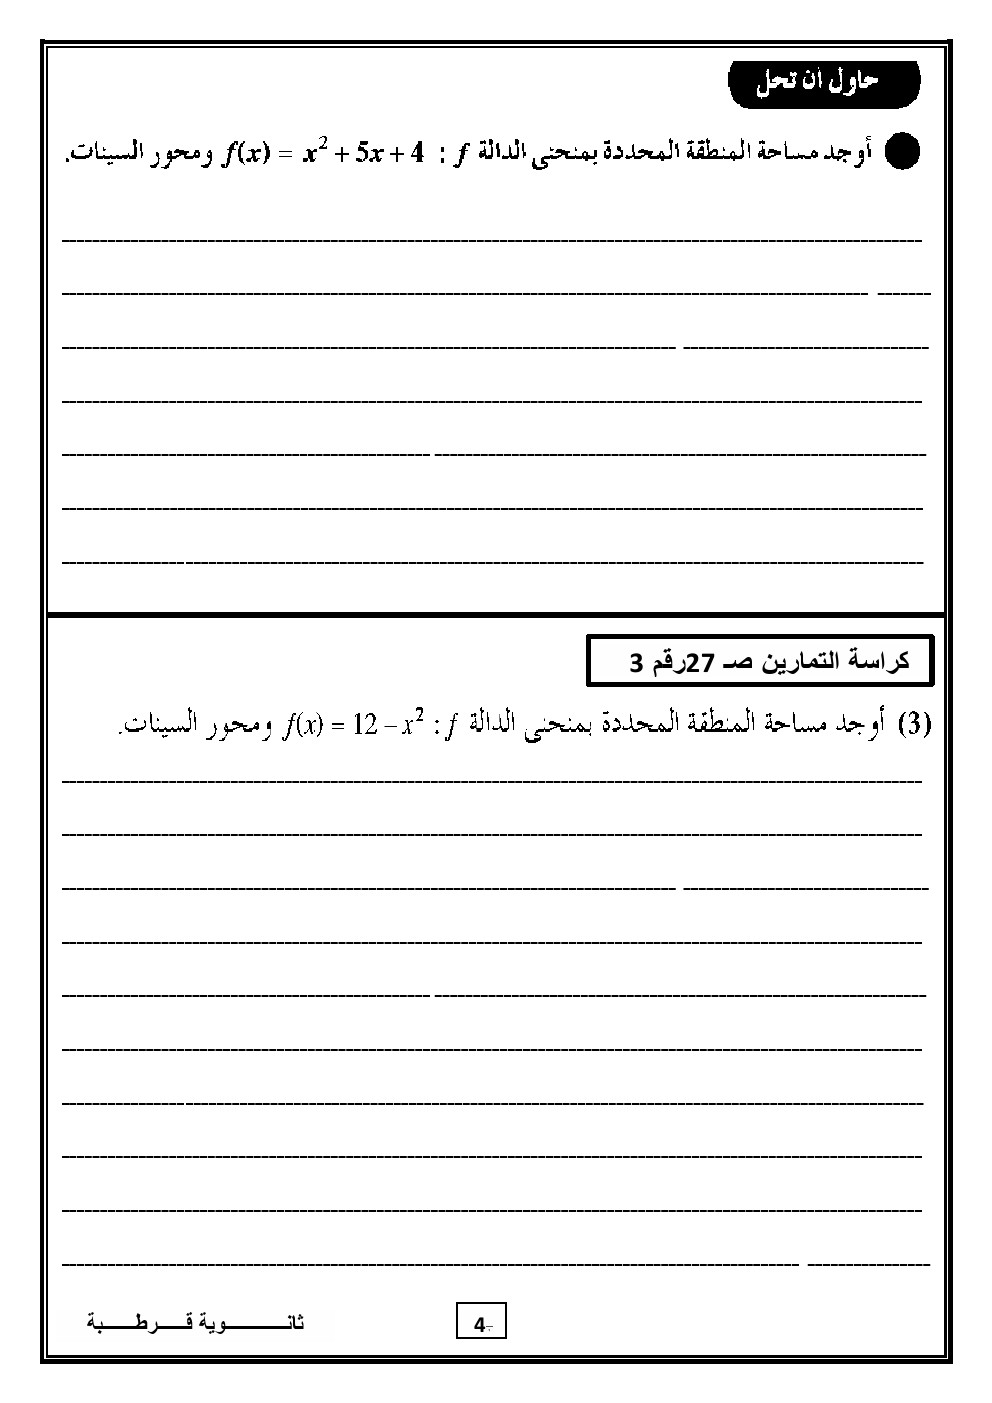 حاول أن تحل
أوجد مساحة المنطقة المحددة بمنحنى الدالة f : f(x) = x² + 5x + 4 ومحور السينات.
كراسة التمارين صـ 27رقم 3
(3) أوجد مساحة المنطقة المحددة بمنحنى الدالة f : f(x) = 12 – x² ومحور السينات.
ثانـــــــــــوية قـــــرطــــــبة
4